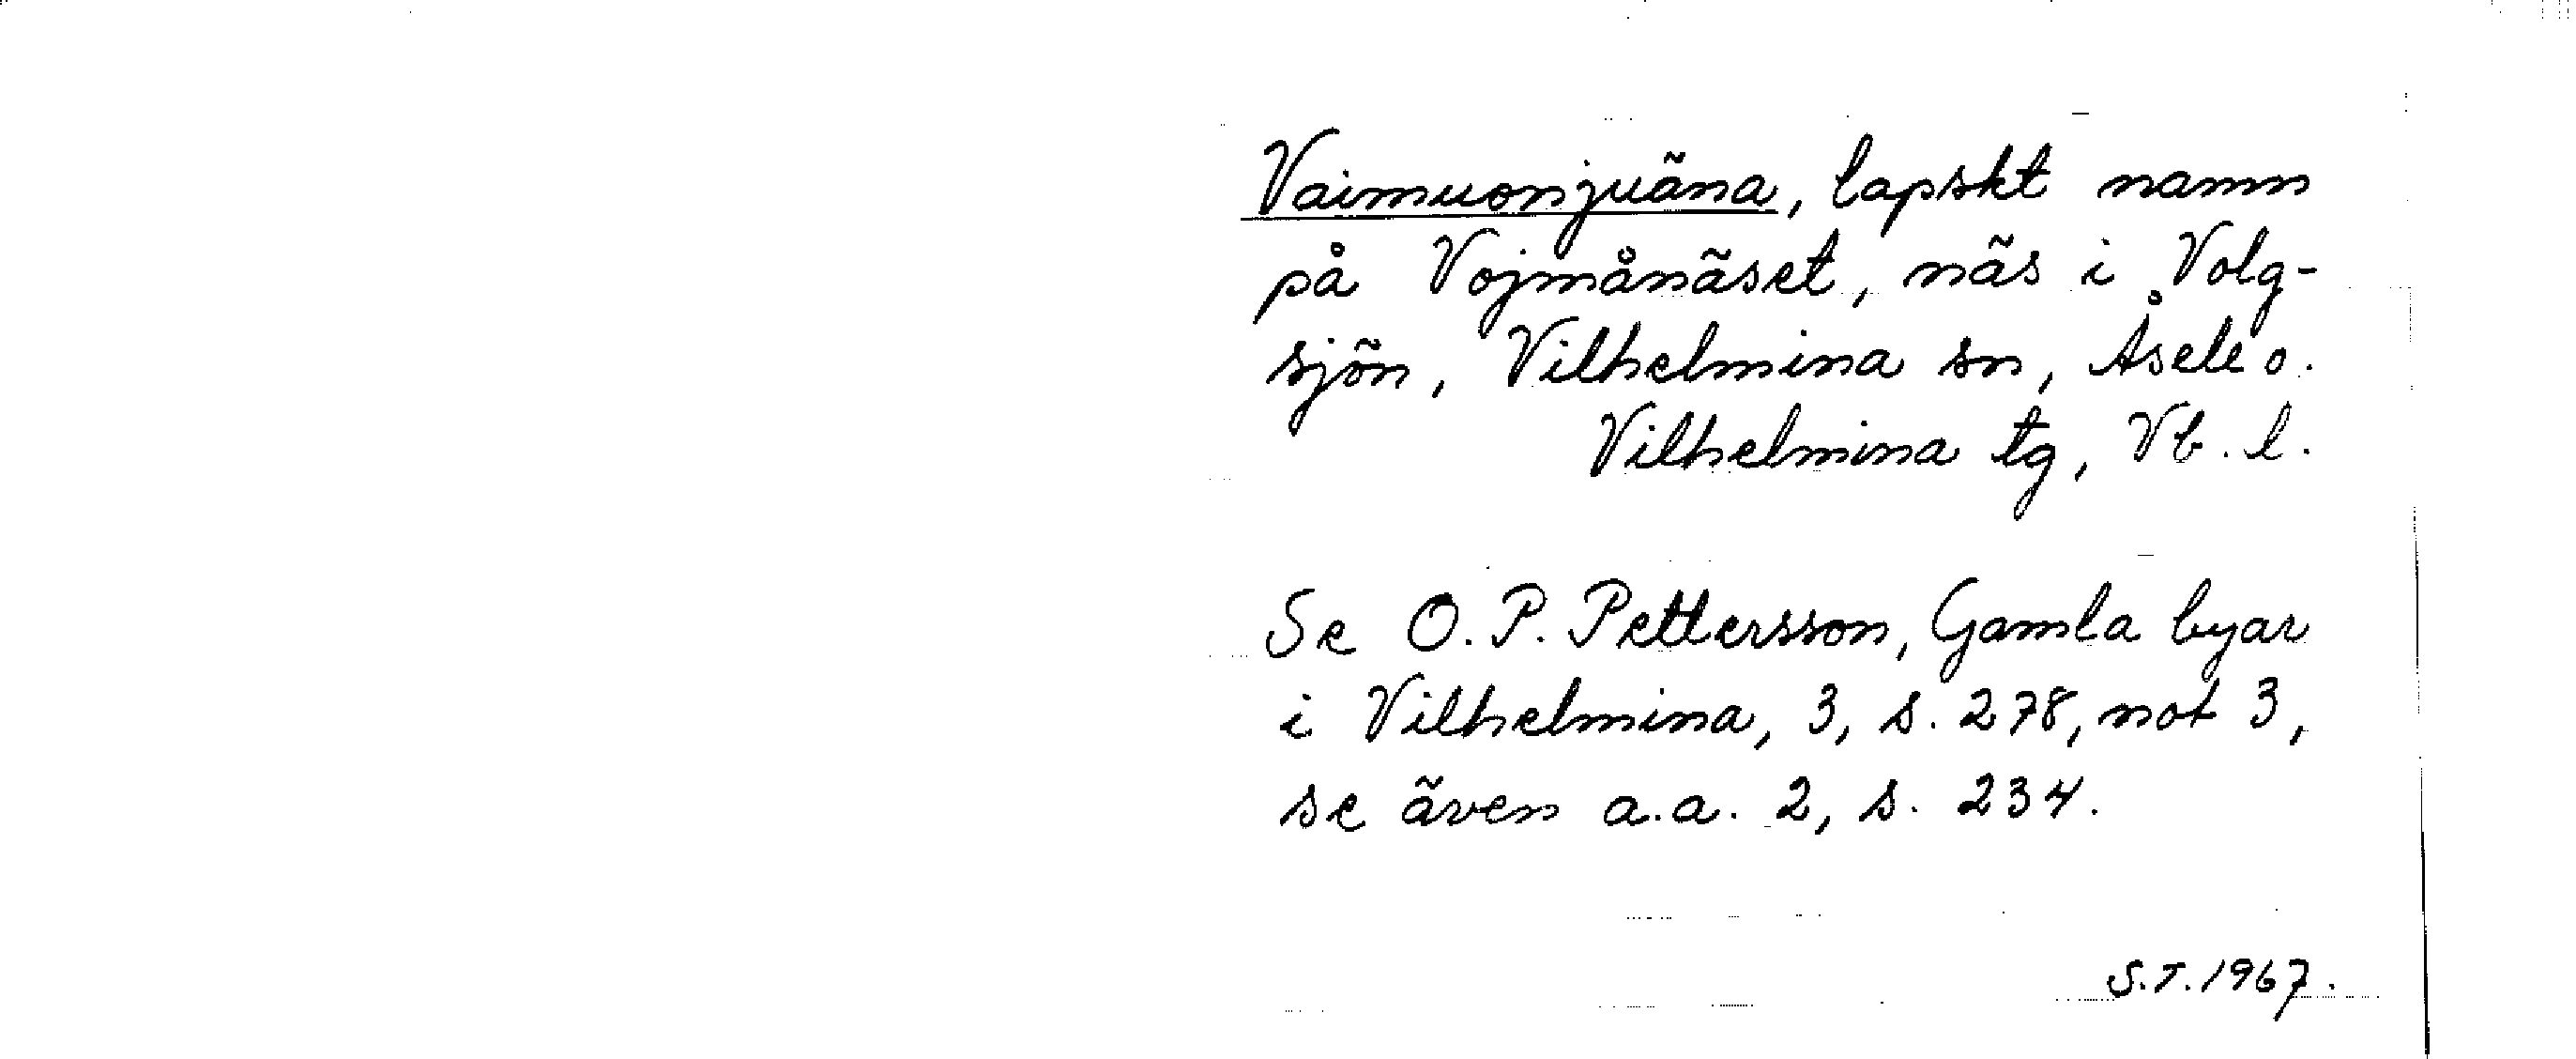 Vaimuonjuäna, lapskt namn
på Vojmånäset, näs i Volg-
sjön, Vilhelmina sn, Åsele o.
Vilhelmina tg, Vb. l.
Se O. P. Pettersson, Gamla byar
i Vilhelmina, 3, s. 278, not 3,
se även a.a. 2, s. 234.
S.T. 1967.